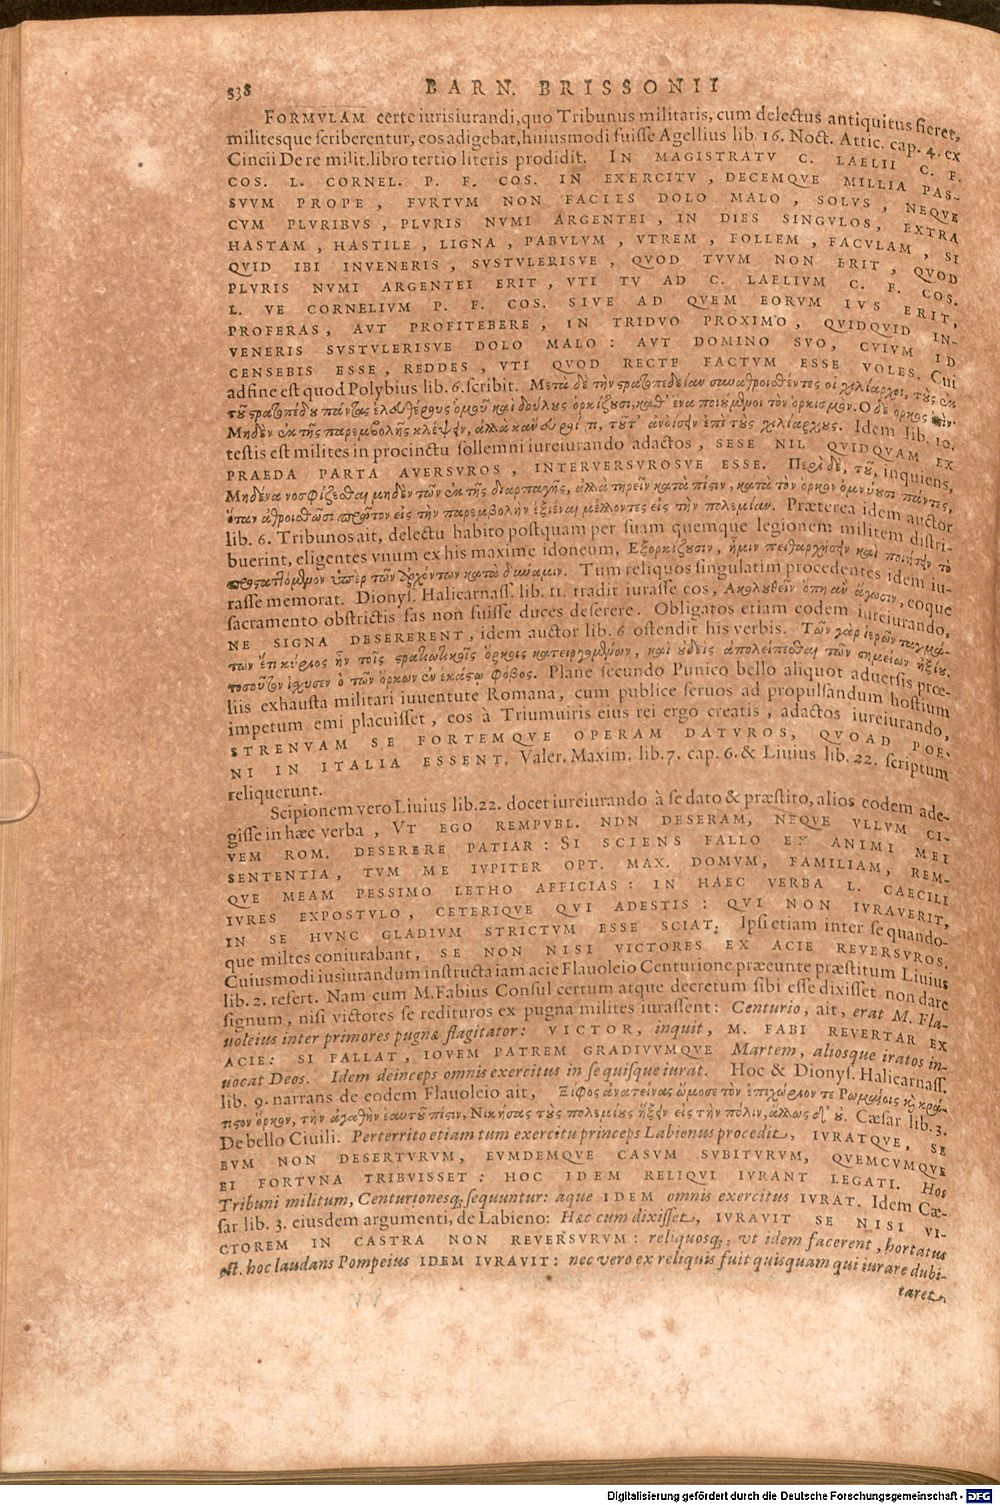 338 BARN. BRISSONII
FORMVLAM certe iurisiurandi, quo Tribunus militaris, cum delectus antiquitus fieret,
militesque scriberentur, eos adigebat, huiusmodi fuisse Agellius lib. 16. Noct. Attic. cap. 4. ex
Cincii De re milit. libro tertio literis prodidit. IN MAGISTRATV C. LAELII C. F.
COS. L. CORNEL. P. F. COS. IN EXERCITV, DECEMQVE MILLIA PAS-
SVVM PROPE, FVRTVM NON FACIES DOLO MALO, SOLVS, NEQVE
CVM PLVRIBVS, PLVRIS NVMI ARGENTEI, IN DIES SINGVLOS, EXTRA
HASTAM, HASTILE, LIGNA, PABVLVM, VTREM, FOLLEM, FACVLAM, SI
QVID IBI INVENERIS, SVSTVLERISVE, QVOD TVVM NON ERIT, QVOD
PLVRIS NVMI ARGENTEI ERIT, VTI TV AD C. LAELIVM C. F. COS.
L. VE CORNELIVM P. F. COS. SIVE AD QVEM EORVM IVS ERIT,
PROFERAS, AVT PROFITEBERE, IN TRIDVO PROXIMO, QVIDQVID IN-
VENERIS SVSTVLERISVE DOLO MALO: AVT DOMINO SVO, CVIVM ID
CENSEBIS ESSE, REDDES, VTI QVOD RECTE FACTVM ESSE VOLES. Cui
adfine est quod Polybius lib. 6. scribit. Μετὰ δὲ τὴν στρατοπεδείαν συναθροισθέντες οἱ χιλίαρχοι, τοὺς ἐκ
τοῦ στρατοπέδου πάντας ἐλευθέρους ὁμοῦ καὶ δούλους ὁρκίζουσι, καθ' ἕνα ποιούμενοι τὸν ὁρκισμόν. Ὁ δὲ ὅρκος ἐστὶν
Μηδὲν ἐκ τῆς παρεμβολῆς κλέψειν, ἀλλὰ κἂν εὕρῃ τι, τοῦτ' ἀνοίσειν ἐπὶ τοὺς χιλιάρχους. Idem lib. 10.
testis est milites in procinctu sollemni iureiurando adactos, SESE NIL QVIDQVAM EX
PRAEDA PARTA AVERSVROS, INTERVERSVROSVE ESSE. Περὶ δὲ, τοῦ, inquiens,
Μηδένα νοσφίζεσθαι μηδὲν τῶν ἐκ τῆς διαρπαγῆς, ἀλλὰ τηρεῖν κατὰ πίστιν, κατὰ τὸν ὅρκον ὀμνύουσι πάντες,
ὅταν ἀθροισθῶσι πρῶτον εἰς τὴν παρεμβολὴν ἐξιέναι μέλλοντες εἰς τὴν πολεμίαν. Præterea idem auctor
lib. 6. Tribunos ait, delectu habito postquam per suam quemque legionem militem distri-
buerint, eligentes vnum ex his maxime idoneum, Ἐξορκίζουσιν, ἦμιν πειθαρχήσειν καὶ ποιήσειν τὸ
προσταττόμενον ὑπὲρ τῶν ἀρχόντων κατὰ δύναμιν. Tum reliquos singulatim procedentes idem iu-
rasse memorat. Dionys. Halicarnass. lib. 11. tradit iurasse cos, Ἀκολουθεῖν ὅπη ἂν ἄγωσιν, eoque
sacramento obstrictis fas non fuisse duces deserere. Obligatos etiam eodem iureiurando,
NE SIGNA DESERERENT, idem auctor lib. 6 ostendit his verbis. Τῶν γὰρ ἱερῶν ταγμά-
των ἔτι κύριος ἦν τοῖς στρατιωτικοῖς ὅρκοις κατειργομένων, καὶ οὐδεὶς ἀπολείπεσθαι τῶν σημείων ἠξίου.
τοσοῦτον ἴσχυσεν ὁ τῶν ὅρκων ἐν ἑκάστῳ φόβος. Plane secundo Punico bello aliquot aduersis prœ-
liis exhausta militari iuuentute Romana, cum publice seruos ad propulsandum hostium
impetum emi placuisset, eos à Triumuiris eius rei ergo creatis, adactos iureiurando,
STRENVAM SE FORTEMQVE OPERAM DATVROS, QVOAD POE-
NI IN ITALIA ESSENT. Valer. Maxim. lib. 7. cap. 6. & Liuius lib. 22. scriptum
reliquerunt.
Scipionem vero Liuius lib. 22. docet iureiurando à se dato & præstito, alios eodem ade-
gisse in hæc verba, VT EGO REMPVBL. NDN DESERAM, NEQVE VLLVM CI-
VEM ROM. DESERERE PATIAR: SI SCIENS FALLO EX ANIMI MEI
SENTENTIA, TVM ME IVPITER OPT. MAX. DOMVM, FAMILIAM, REM-
QVE MEAM PESSIMO LETHO AFFICIAS: IN HAEC VERBA L. CAECILI
IVRES EXPOSTVLO, CETERIQVE QVI ADESTIS: QVI NON IVRAVERIT,
IN SE HVNC GLADIVM STRICTVM ESSE SCIAT. Ipsi etiam inter se quando-
que miltes coniurabant, SE NON NISI VICTORES EX ACIE REVERSVROS.
Cuiusmodi iusiurandum instructa iam acie Flauoleio Centurione præeunte præstitum Liuius
lib. 2. refert. Nam cum M. Fabius Consul certum atque decretum sibi esse dixisset non dare
signum, nisi victores se redituros ex pugna milites iurassent: Centurio, ait, erat M. Fla-
uoleius inter primores pugnæ flagitator: VICTOR, inquit, M. FABI REVERTAR EX
ACIE: SI FALLAT, IOVEM PATREM GRADIVVMQVE Martem, aliosque iratos in-
uocat Deos. Idem deinceps omnis exercitus in se quisque iurat. Hoc & Dionys. Halicarnass.
lib. 9. narrans de eodem Flauoleio ait, Ξίφος ἀνατείνας ὤμοσε τὸν ἐπιχώριον τε Ῥωμαίοις καὶ κρά-
τιστον ὅρκον, τὴν ἀγαθὴν ἑαυτοῦ πίστιν, Νικήσας τοὺς πολεμίους ἥξειν εἰς τὴν πόλιν, ἄλλως δ' οὔ. Cæsar lib. 3.
De bello Ciuili. Perterrito etiam tum exercitu princeps Labienus procedit, IVRATQVE, SE
EVM NON DESERTVRVM, EVMDEMQVE CASVM SVBITVRVM, QVEMCVMQVE
EI FORTVNA TRIBVISSET: HOC IDEM RELIQVI IVRANT LEGATI. Hos
Tribuni militum, Centurionesq; sequuntur: atque IDEM omnis exercitus IVRAT. Idem Cæ-
sar lib. 3. eiusdem argumenti, de Labieno: Hæc cum dixisset, IVRAVIT SE NISI VI-
CTOREM IN CASTRA NON REVERSVRVM: reliquosq;, vt idem facerent, hortatus
est. hoc laudans Pompeius IDEM IVRAVIT: nec vero ex reliquis fuit quisquam qui iurare dubi-
taret.
Digitalisierung gefördert durch die Deutsche Forschungsgemeinschaft - DFG